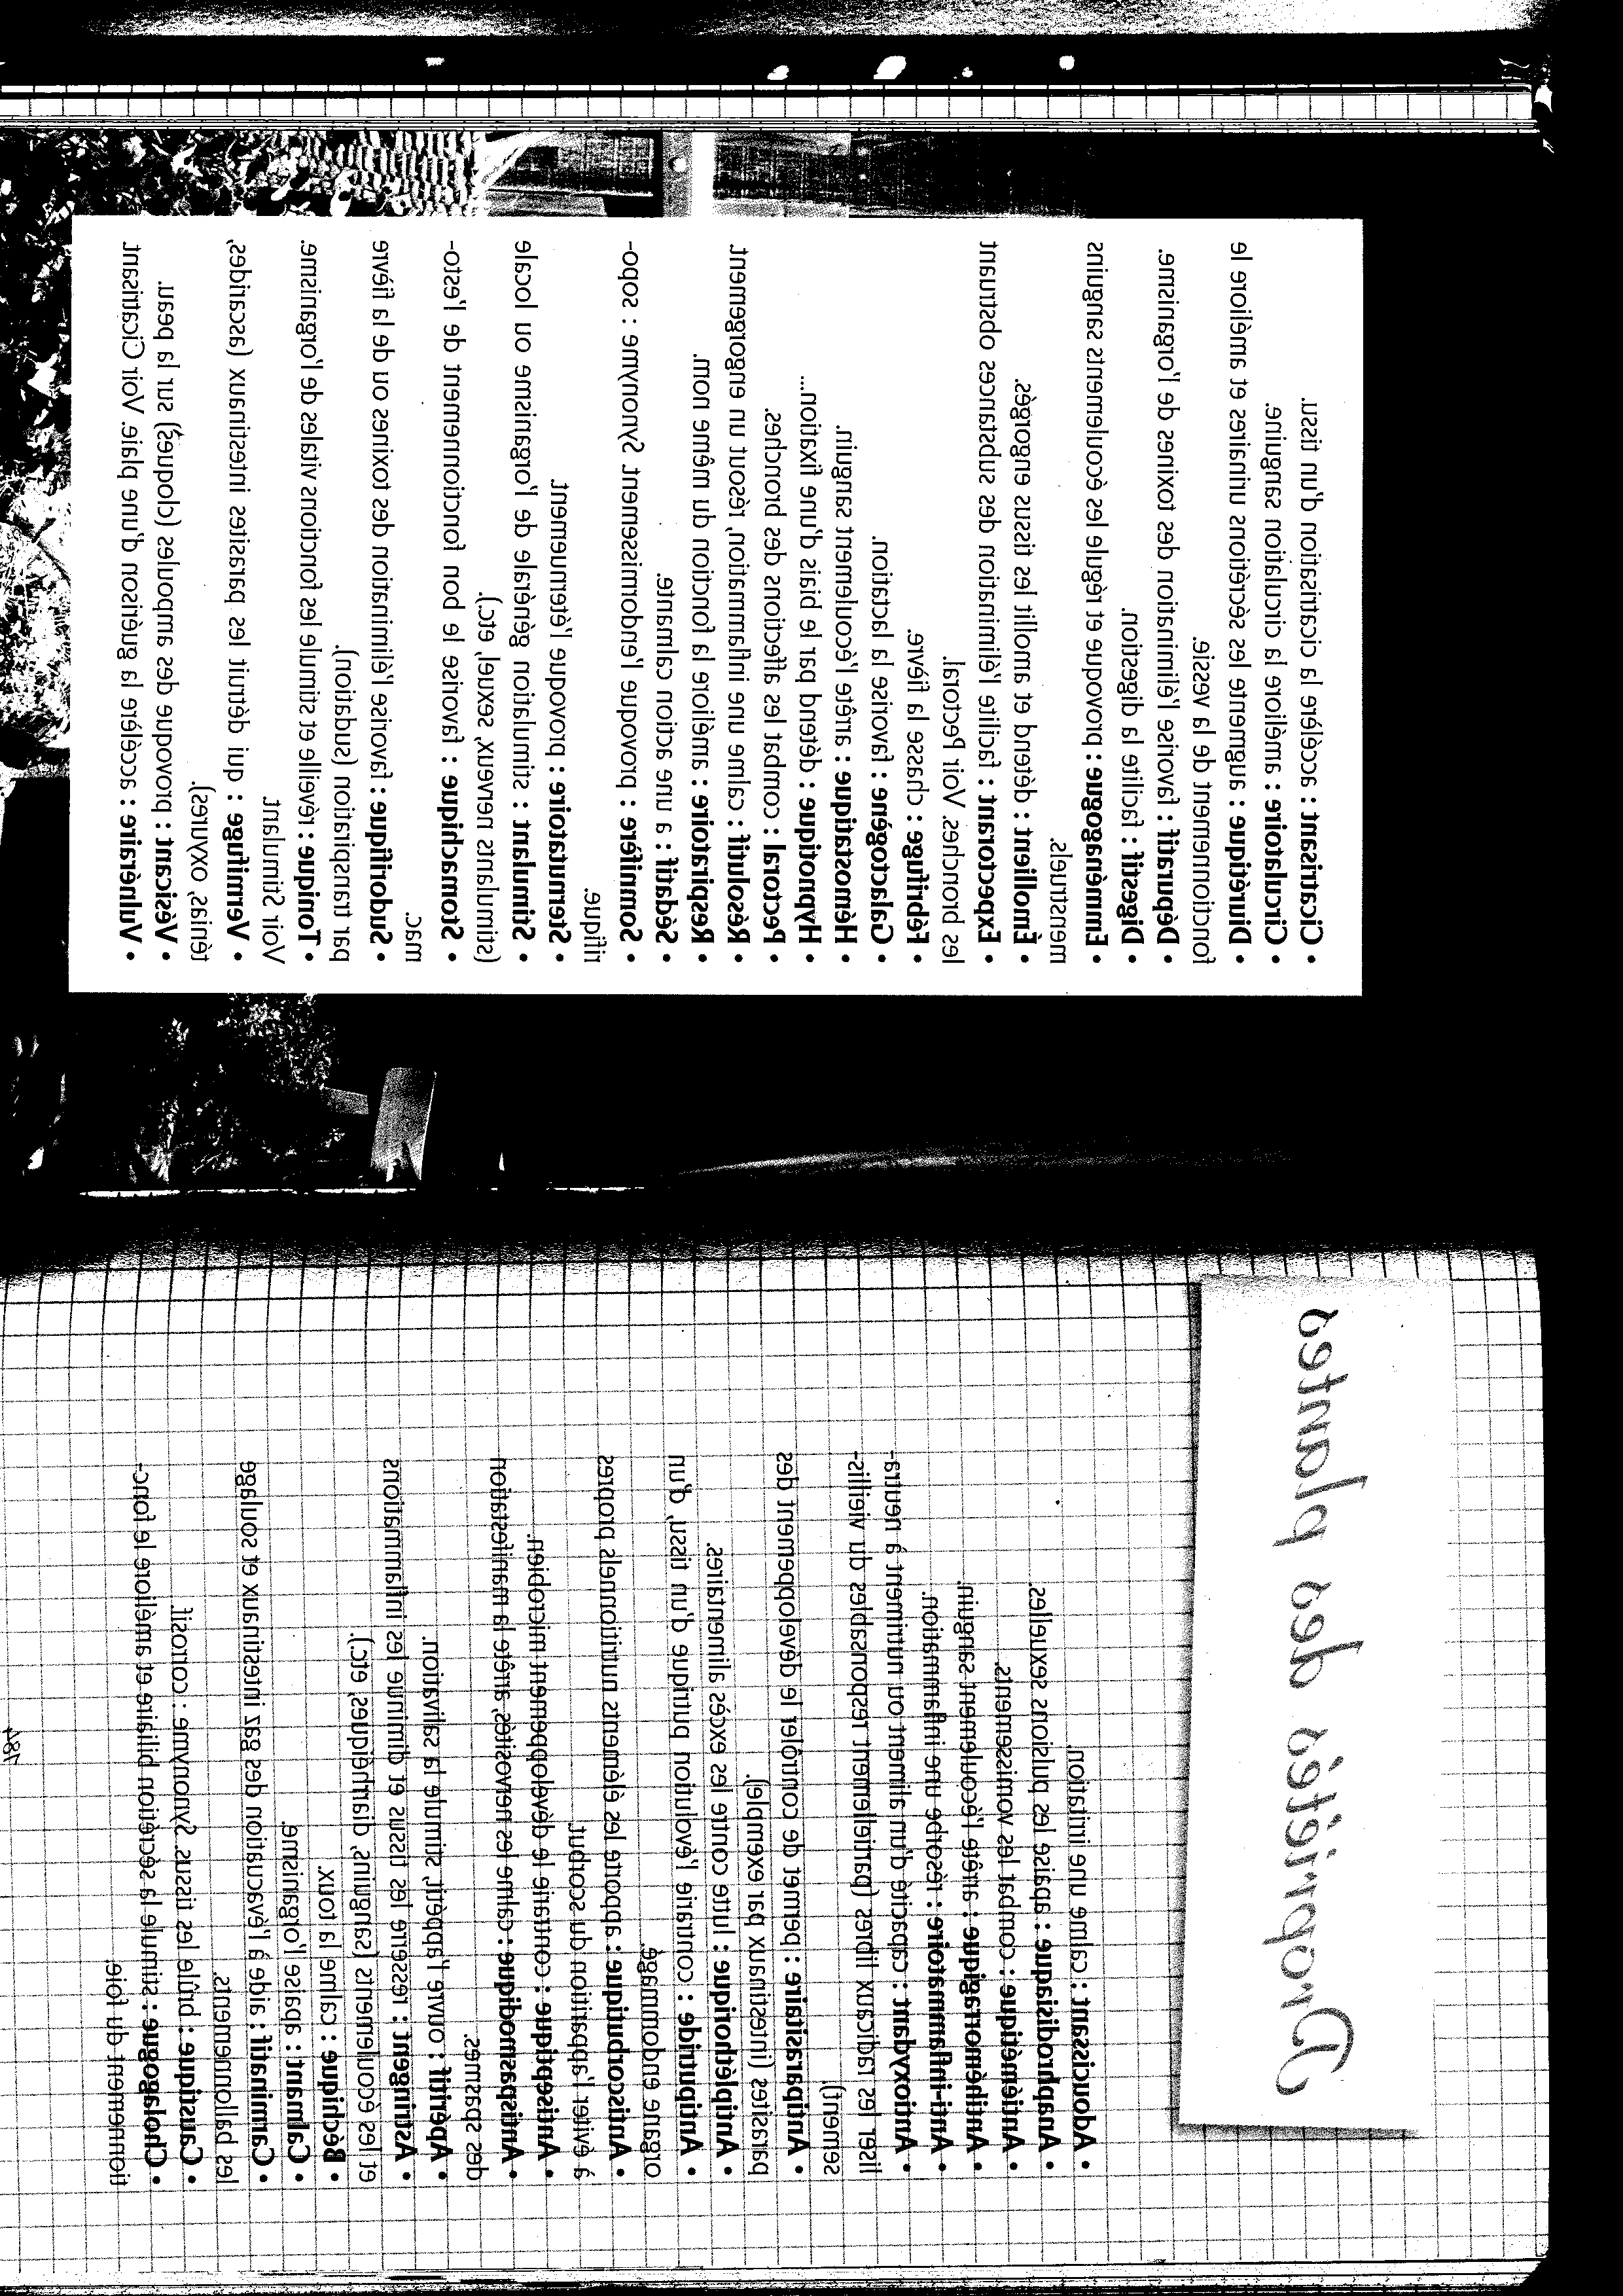 Propriétés des plantes
• Adoucissant : calme une irritation.
• Anaphrodisiaque : apaise les pulsions sexuelles.
• Antiémétique : combat les vomissements.
• Antihémorragique : arrête l'écoulement sanguin.
• Anti-inflammatoire : résorbe une inflammation.
• Antioxydant : capacité d'un aliment ou nutriment à neutra-
liser les radicaux libres (partiellement responsables du vieillis-
sement).
• Antiparasitaire : permet de contrôler le développement des
parasites (intestinaux par exemple).
• Antipléthorique : lutte contre les excès alimentaires.
• Antiputride : contrarie l'évolution putride d'un tissu, d'un
organe endommagé.
• Antiscorbutique : apporte les éléments nutritionnels propres
à éviter l'apparition du scorbut.
• Antiseptique : contrarie le développement microbien.
• Antispasmodique : calme les nervosités, arrête la manifestation
des spasmes.
• Apéritif : ouvre l'appétit, stimule la salivation.
• Astringent : resserre les tissus et diminue les inflammations
et les écoulements (sanguins, diarrhéiques, etc.).
• Béchique : calme la toux.
• Calmant : apaise l'organisme.
• Carminatif : aide à l'évacuation des gaz intestinaux et soulage
les ballonnements.
• Caustique : brûle les tissus. Synonyme : corrosif.
• Cholagogue : stimule la sécrétion biliaire et améliore le fonc-
tionnement du foie
• Cicatrisant : accélère la cicatrisation d'un tissu.
• Circulatoire : améliore la circulation sanguine.
• Diurétique : augmente les sécrétions urinaires et améliore le
fonctionnement de la vessie.
• Dépuratif : favorise l'élimination des toxines de l'organisme.
• Digestif : facilite la digestion.
• Emménagogue : provoque et régule les écoulements sanguins
menstruels.
• Émollient : détend et amollit les tissus engorgés.
• Expectorant : facilite l'élimination des substances obstruant
les bronches. Voir Pectoral.
• Fébrifuge : chasse la fièvre.
• Galactogène : favorise la lactation.
• Hémostatique : arrête l'écoulement sanguin.
• Hypnotique : détend par le biais d'une fixation...
• Pectoral : combat les affections des bronches.
• Résolutif : calme une inflammation, résout un engorgement
• Respiratoire : améliore la fonction du même nom.
• Sédatif : a une action calmante.
• Somnifère : provoque l'endormissement. Synonyme : sopo-
rifique.
• Sternutatoire : provoque l'éternuement.
• Stimulant : stimulation générale de l'organisme ou locale
(stimulants nerveux, sexuel, etc.).
• Stomachique : favorise le bon fonctionnement de l'esto-
mac.
• Sudorifique : favorise l'élimination des toxines ou de la fièvre
par transpiration (sudation).
• Tonique : réveille et stimule les fonctions vitales de l'organisme.
Voir Stimulant.
• Vermifuge : qui détruit les parasites intestinaux (ascarides,
ténias, oxyures).
• Vésicant : provoque des ampoules (cloques) sur la peau.
• Vulnéraire : accélère la guérison d'une plaie. Voir Cicatrisant